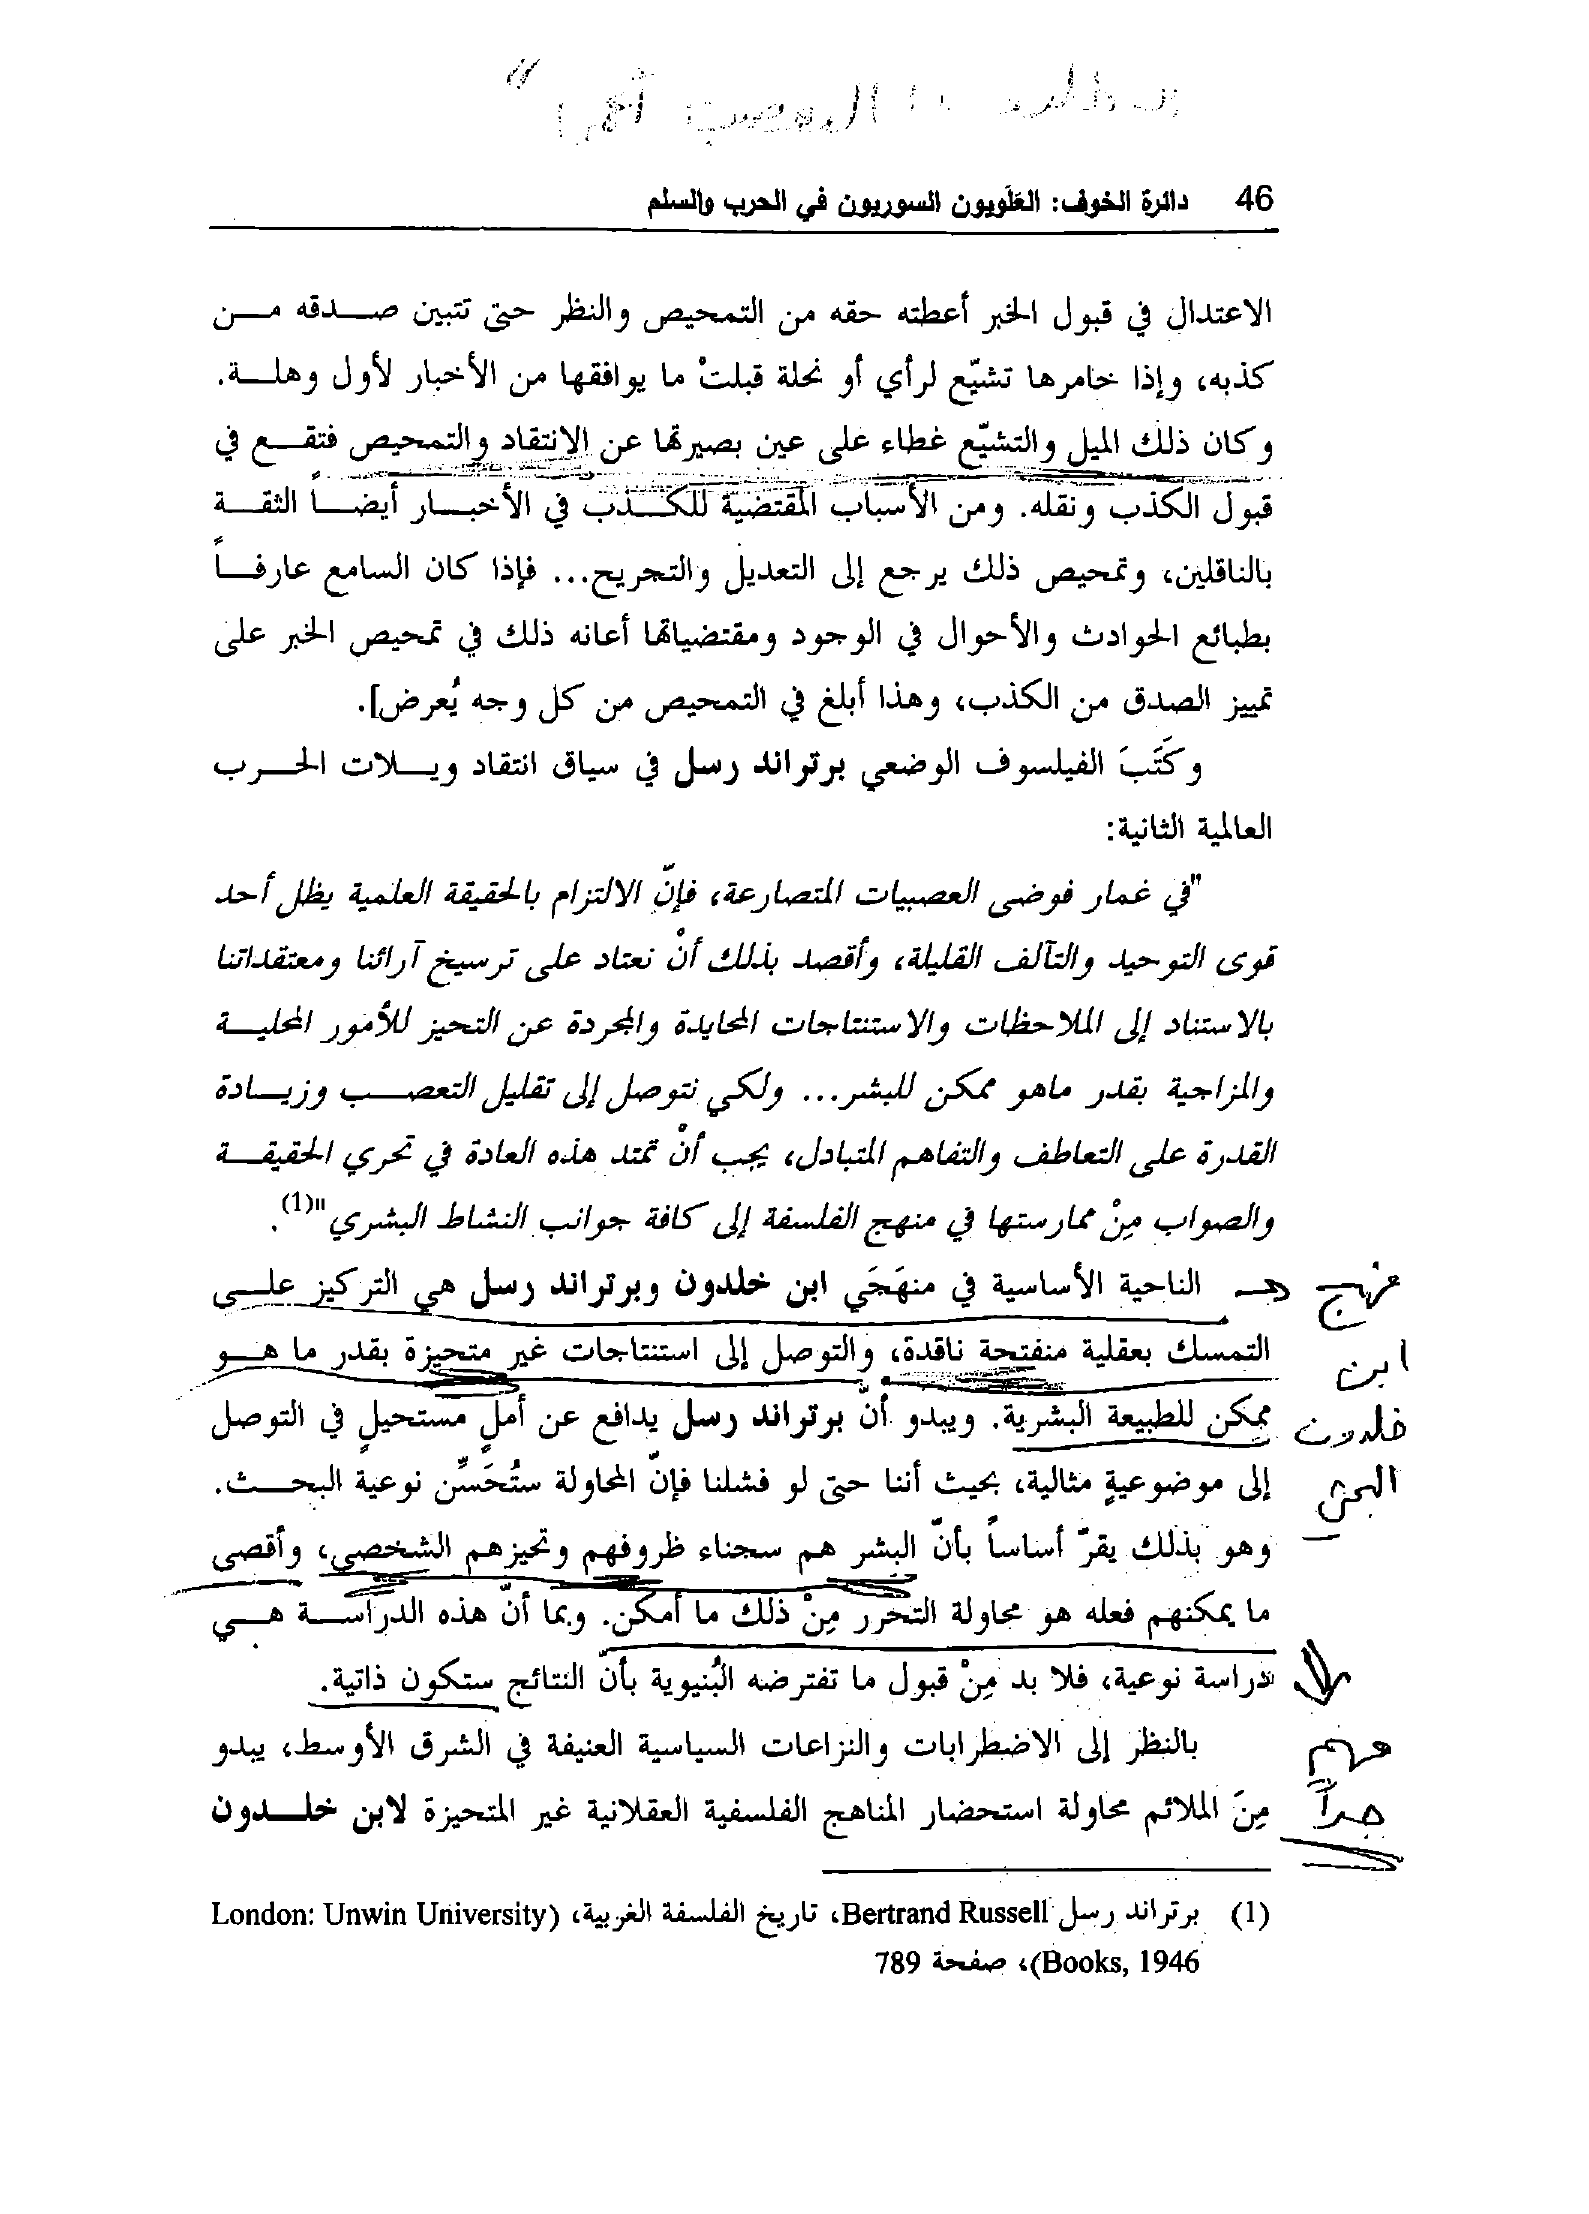 46 دائرة الخوف: العَلَويون السوريون في الحرب والسلم
الاعتدال في قبول الخبر أعطته حقه من التمحيص والنظر حتى تتبين صدقه من
كذبه، وإذا خامرها تشيّع لرأي أو نحلة قبلتْ ما يوافقها من الأخبار لأول وهلة.
وكان ذلك الميل والتشيّع غطاء على عين بصيرتها عن الانتقاد والتمحيص فتقع في
قبول الكذب ونقله. ومن الأسباب المقتضية للكذب في الأخبار أيضاً الثقة
بالناقلين، وتمحيص ذلك يرجع إلى التعديل والتجريح... فإذا كان السامع عارفاً
بطبائع الحوادث والأحوال في الوجود ومقتضياتها أعانه ذلك في تمحيص الخبر على
تمييز الصدق من الكذب، وهذا أبلغ في التمحيص من كل وجه يُعرض].
وكَتَبَ الفيلسوف الوضعي برتراند رسل في سياق انتقاد ويلات الحرب
العالمية الثانية:
"في غمار فوضى العصبيات المتصارعة، فإنّ الالتزام بالحقيقة العلمية يظل أحد
قوى التوحيد والتآلف القليلة، وأقصد بذلك أنْ نعتاد على ترسيخ آرائنا ومعتقداتنا
بالاستناد إلى الملاحظات والاستنتاجات المحايدة والمجردة عن التحيز للأمور المحلية
والمزاجية بقدر ماهو ممكن للبشر... ولكي نتوصل إلى تقليل التعصب وزيادة
القدرة على التعاطف والتفاهم المتبادل، يجب أنْ تمتد هذه العادة في تحري الحقيقة
والصواب مِنْ ممارستها في منهج الفلسفة إلى كافة جوانب النشاط البشري"(1).
الناحية الأساسية في منهَجَي ابن خلدون وبرتراند رسل هي التركيز على
التمسك بعقلية منفتحة ناقدة، والتوصل إلى استنتاجات غير متحيزة بقدر ما هو
ممكن للطبيعة البشرية. ويبدو أنّ برتراند رسل يدافع عن أملٍ مستحيلٍ في التوصل
إلى موضوعيةٍ مثالية، بحيث أننا حتى لو فشلنا فإنّ المحاولة ستُحَسِّن نوعية البحث.
وهو بذلك يقرّ أساساً بأنّ البشر هم سجناء ظروفهم وتحيزهم الشخصي، وأقصى
ما يمكنهم فعله هو محاولة التحرر مِنْ ذلك ما أمكن. وبما أنّ هذه الدراسة هي
دراسة نوعية، فلا بد مِنْ قبول ما تفترضه البُنيوية بأنّ النتائج ستكون ذاتية.
بالنظر إلى الاضطرابات والنزاعات السياسية العنيفة في الشرق الأوسط، يبدو
مِنَ الملائم محاولة استحضار المناهج الفلسفية العقلانية غير المتحيزة لابن خلدون
منهج
ابن
خلدون
مهم
جداً
(1) برتراند رسل Bertrand Russell، تاريخ الفلسفة الغربية، (London: Unwin University
Books, 1946)، صفحة 789